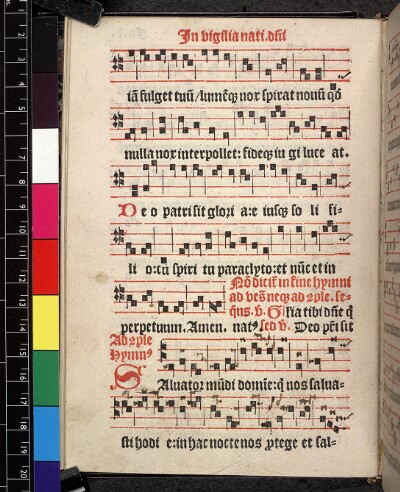 In vigilia nati. dñi
iã fulget tuũ/lumẽq; nox spirat nouũ q̃
nulla nox interpollet: fideq; in gi luce at.
D e o patri sit glori a: e iusq; so li fi-
li o: cũ spiri tu paraclyto: et nũc et in
Nõ dicit̃ in fine hymni
ad ves̃ neq; ad 9ple. se-
q̃ns. v̄. Gl̃ia tibi dñe q̃
perpetuum. Amen. nat⁹ sed v̄. Deo pr̃i sit
Ad 9ple
Hymn⁹
SAluator mũdi domĩe: q̃ nos salua-
sti hodi e: in hac nocte nos ꝓtege et sal-
1
2
3
4
5
6
7
8
9
10
11
12
13
14
15
16
17
18
19
20